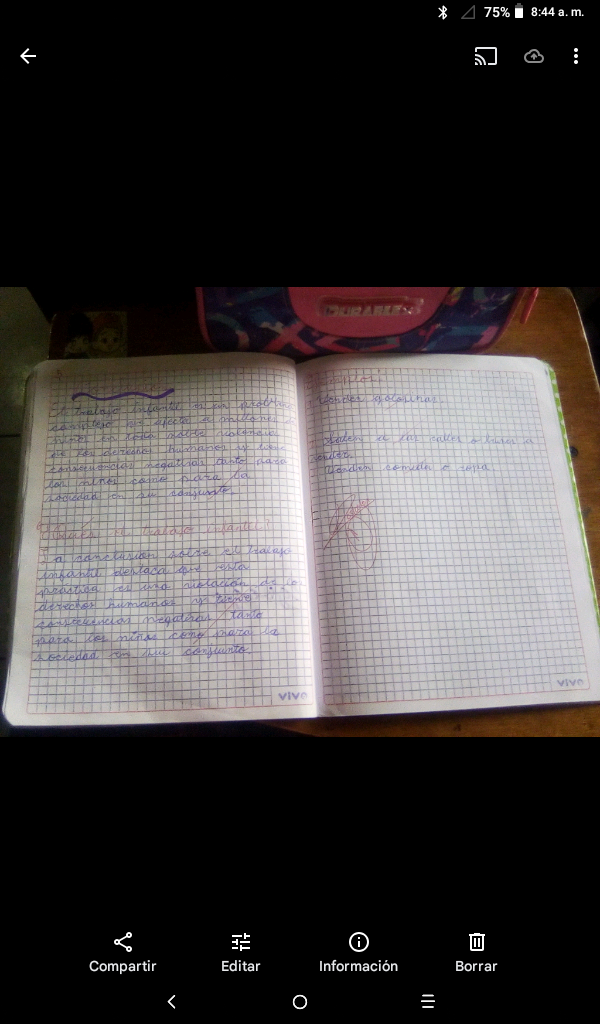 75% 8:44 a. m.
DURABLE
El trabajo infantil es un problema
complejo que afecta a millones
niños en todo
de los derechos humanos y tiene
consecuencias negativas tanto para
los niños como para la
sociedad en su conjunto.
el trabajo infantil?
La conclusión sobre el trabajo
infantil destaca que esta
práctica es una violación de los
derechos humanos y tiene
consecuencias negativas tanto
para los niños como para la
sociedad en su conjunto
vivo
Vender golosinas.
Salen a las calles a
vender.
Venden comida o ropa
vivo
Compartir
Editar
Información
Borrar